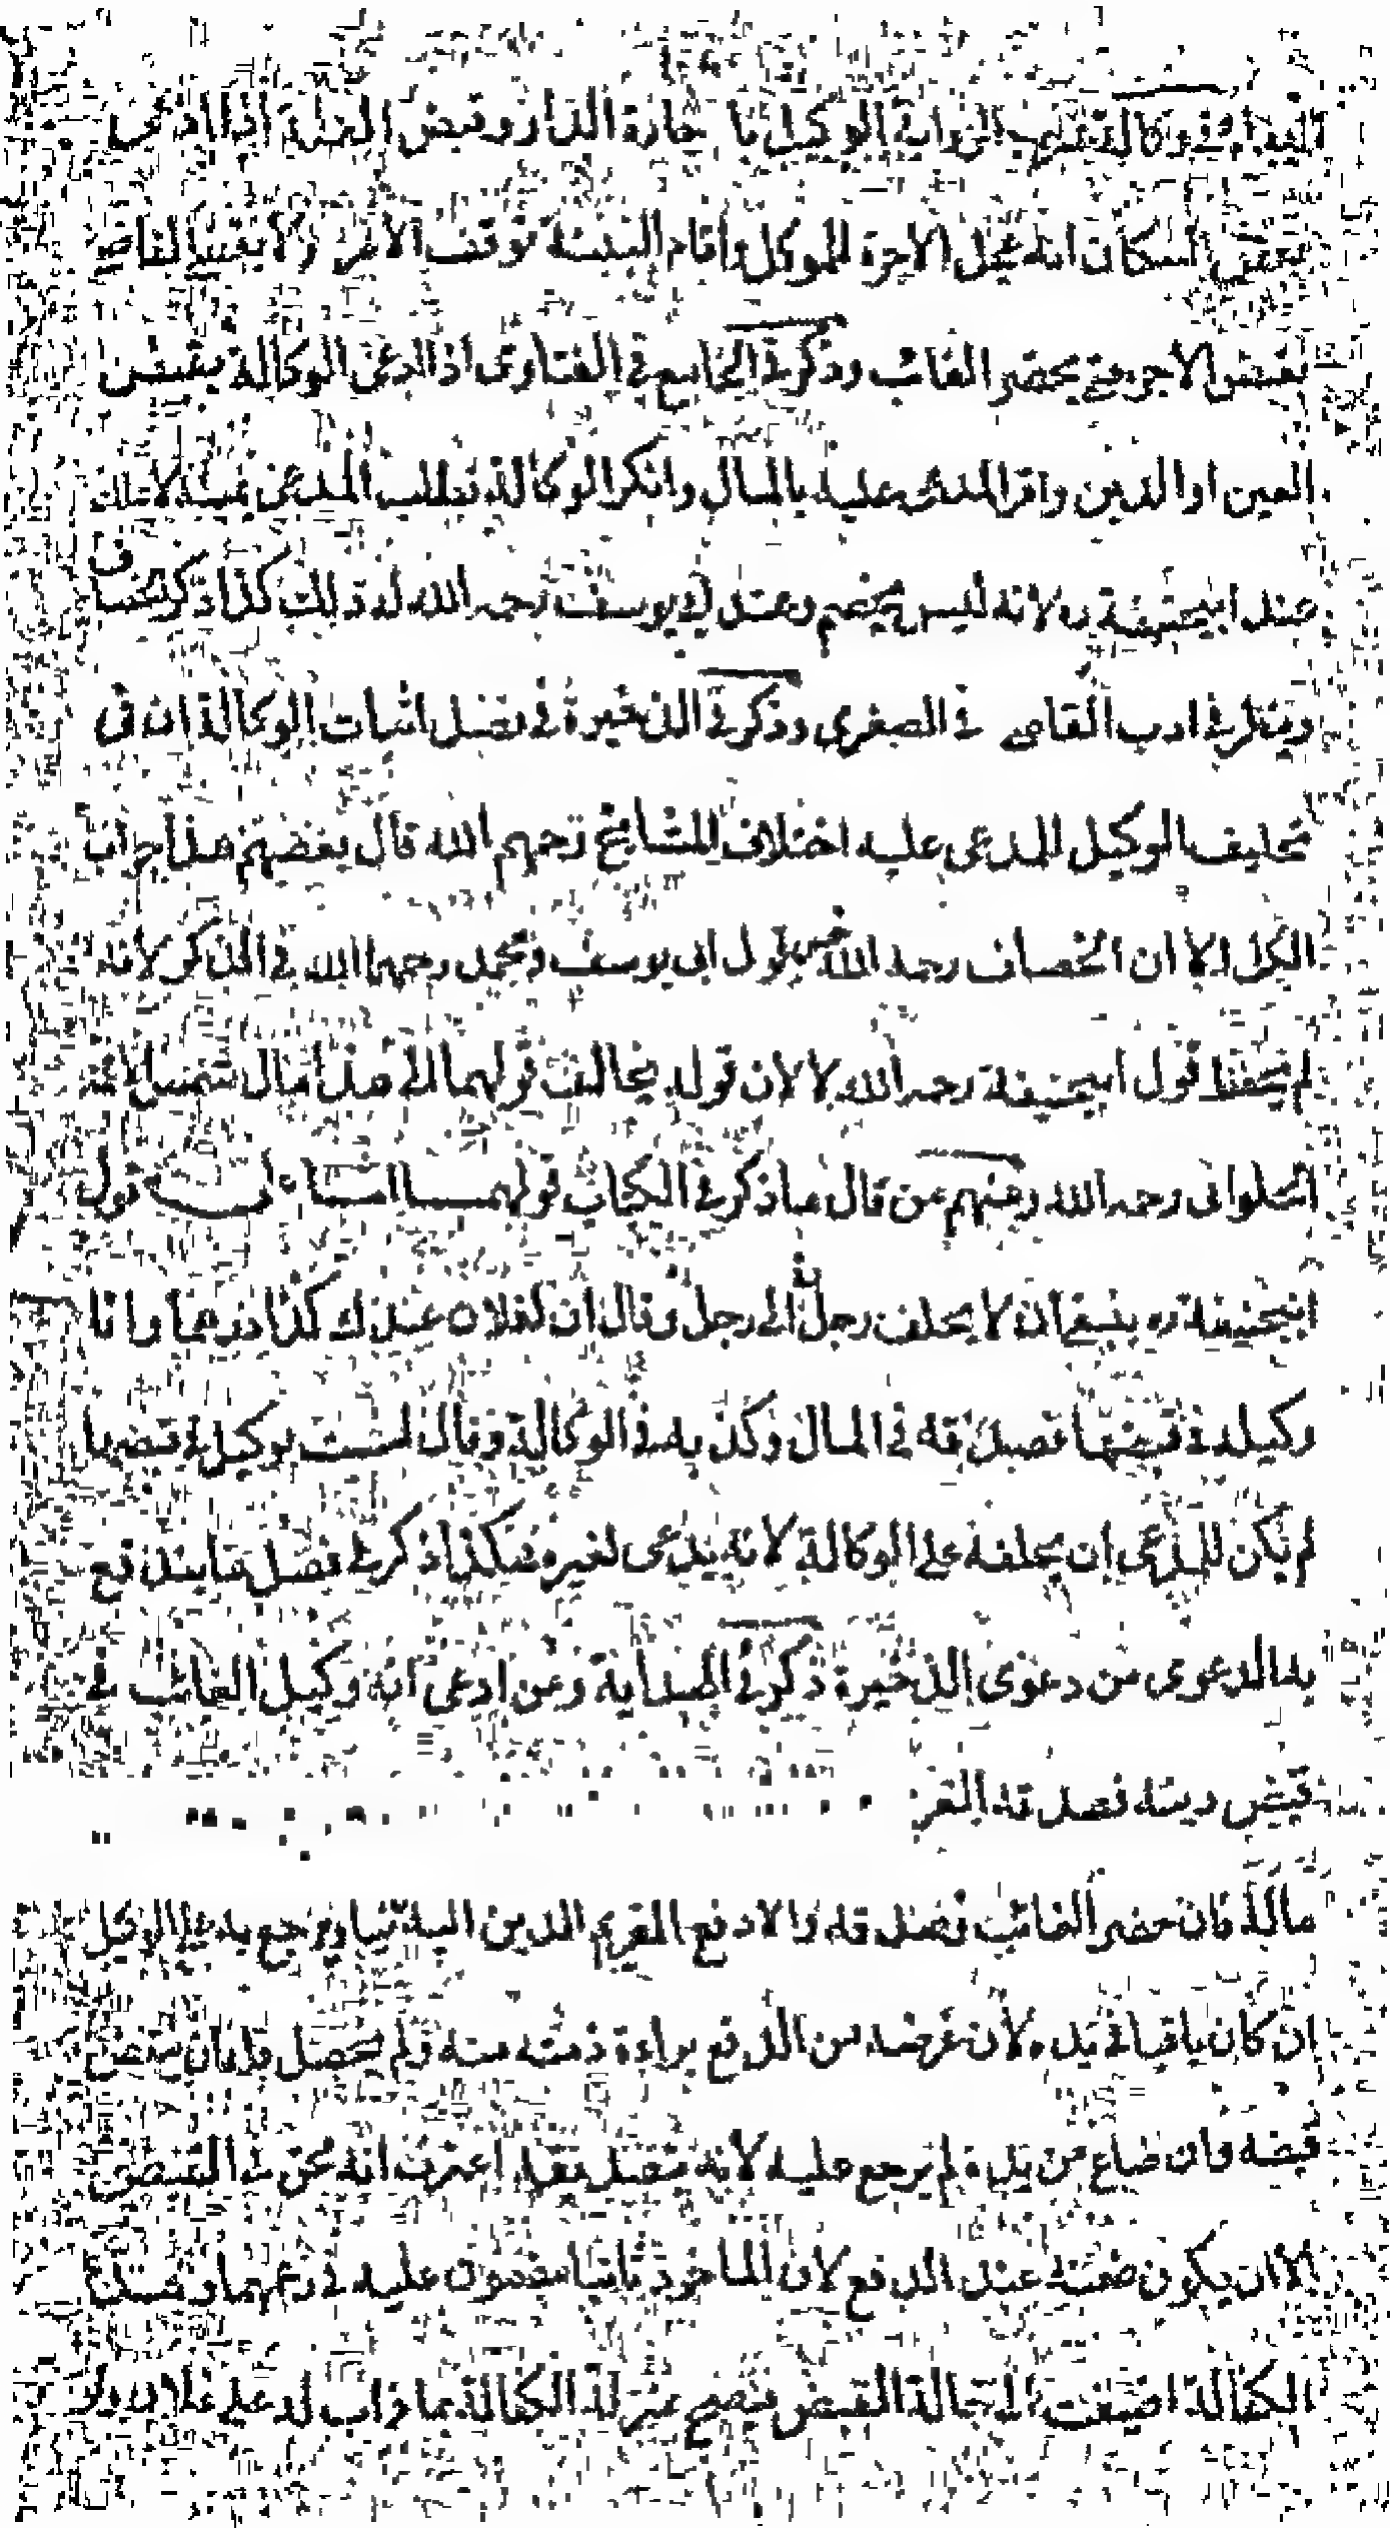 في وكالة الوكيل با جارة الدار وقبض الغلة اذا ادعى
بعض السكان انه عجل الاجرة للموكل واقام البينة توقف الامر ولا يقضي القاضي
بقبض الاجرة حتى يحضر الغائب وذكر في الجامع في الفتاوى اذا ادعى الوكالة بقبض
العين او الدين واقر المدعى عليه بالمال وانكر الوكالة فطلب المدعي يمينه لا يحلف
عند ابيحنيفة ره لانه ليس بخصم وعند ابي يوسف رحمه الله له ذلك كذا ذكر الخصاف
وينظر في ادب القاضي في الصغرى وذكر في الذخيرة في فصل اثبات الوكالة ان في
تحليف الوكيل المدعى عليه اختلاف المشايخ رحمهم الله قال بعضهم هذا جواب
الكل الا ان الخصاف رحمه الله خص قول ابى يوسف ومحمد رحمهما الله في الذكر لانه
لم يحفظ قول ابيحنيفة رحمه الله لا لان قوله يخالف قولهما الى هذا مال شمس الائمة
الحلوانى رحمه الله ومنهم من قال ما ذكر في الكتاب قولهما اما قول
ابيحنيفة ره ينبغى ان لا يحلف رجل اتى الى رجل وقال ان لفلان عندك كذا درهما وانا
وكيله في قبضها فصدقه في المال وكذبه في الوكالة وقال لست بوكيل في قبضها
لم يكن للمدعى ان يحلفه على الوكالة لانه يدعى لغيره هكذا ذكر في فصل ما يندفع
به الدعوى من دعوى الذخيرة ذكر في الهداية ومن ادعى انه وكيل الغائب في
قبض دينه فصدقه الغريم
ماله فان حضر الغائب فصدقه والا دفع الغريم الدين اليه ثانيا ويرجع به على الوكيل
ان كان باقيا في يده لان غرضه من الدفع براءة ذمته منه ولم يحصل فله ان ينقض
قبضه وان ضاع من يده لم يرجع عليه لانه بتصديقه اعترف انه محق في القبض
الا ان يكون ضمنه عند الدفع لان الماخوذ ثانيا مضمون عليه في زعمهما وهذه
الكفالة اضيفت الى حالة القبض فتصح بمنزلة الكفالة بما ذاب له على فلان ولو